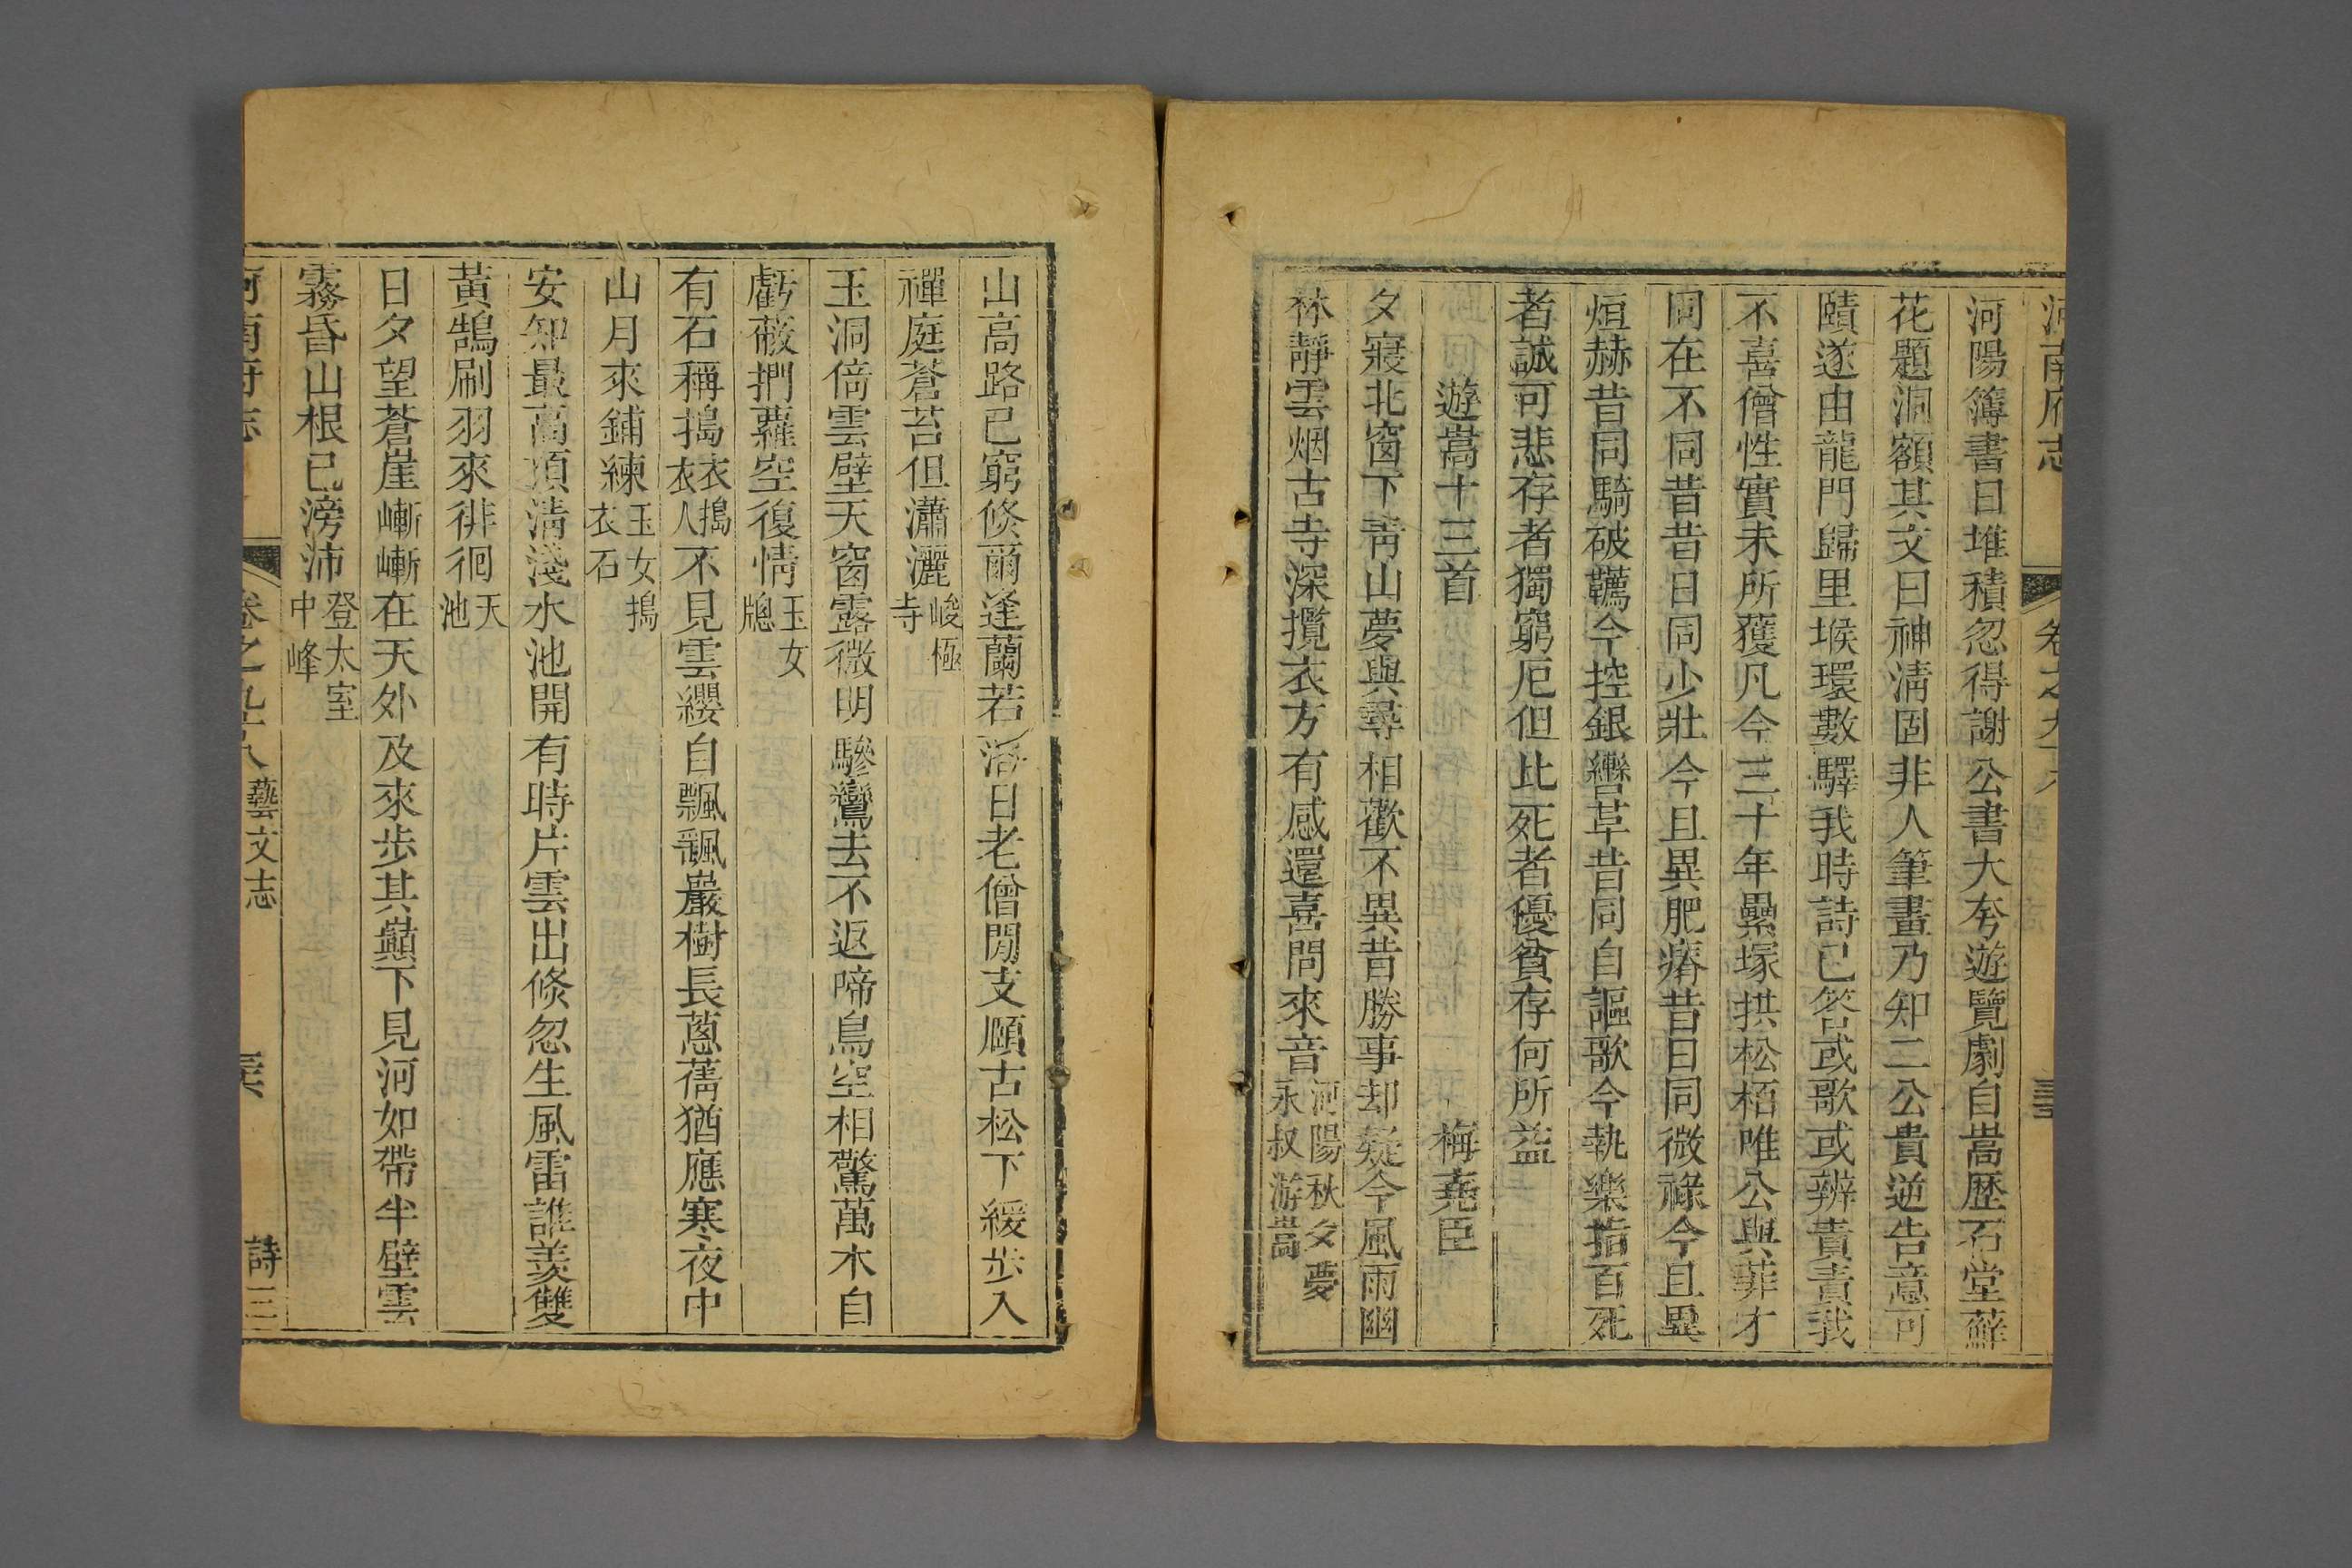 河南府志 卷之九十八
河陽簿書日堆積忽得謝公書大夸遊覽劇自嵩歷石堂蘚
花題洞額其文曰神淸固非人筆畫乃知二公貴逆告意可
賾遂由龍門歸里堠環數驛我時詩已答或歌或辨責責我
不喜僧性實未所獲凡今三十年纍塚拱松栢唯公與菲才
同在不同昔昔日同少壯今且異肥瘠昔日同微祿今且異
烜赫昔同騎破韉今控銀轡革昔同自謳歌今執樂指百死
者誠可悲存者獨窮厄但此死者優貧存何所益
遊嵩十三首 梅堯臣
夕寢北窗下靑山夢與尋相歡不異昔勝事却疑今風雨幽
林靜雲烟古寺深攬衣方有感還喜問來音河陽秋夕夢永叔游嵩
山高路已窮倏爾逢蘭若落日老僧閒支頤古松下緩步入
禪庭蒼苔但瀟灑峻極寺
玉洞倚雲壁天窗露微明驂鸞去不返啼鳥空相驚萬木自
虧蔽捫蘿空復情玉女牕
有石稱搗衣衣搗衣人不見雲纓自飄颻巖樹長蔥蒨猶應寒夜中
山月來鋪練玉女搗衣石
安知最高頂淸淺水池開有時片雲出倏忽生風雷誰羨雙
黃鵠刷羽來徘徊天池
日夕望蒼崖嶄嶄在天外及來步其巔下見河如帶半壁雲
霧昏山根已滂沛登太室中峰
河南府志 卷之九十八 藝文志 詩三